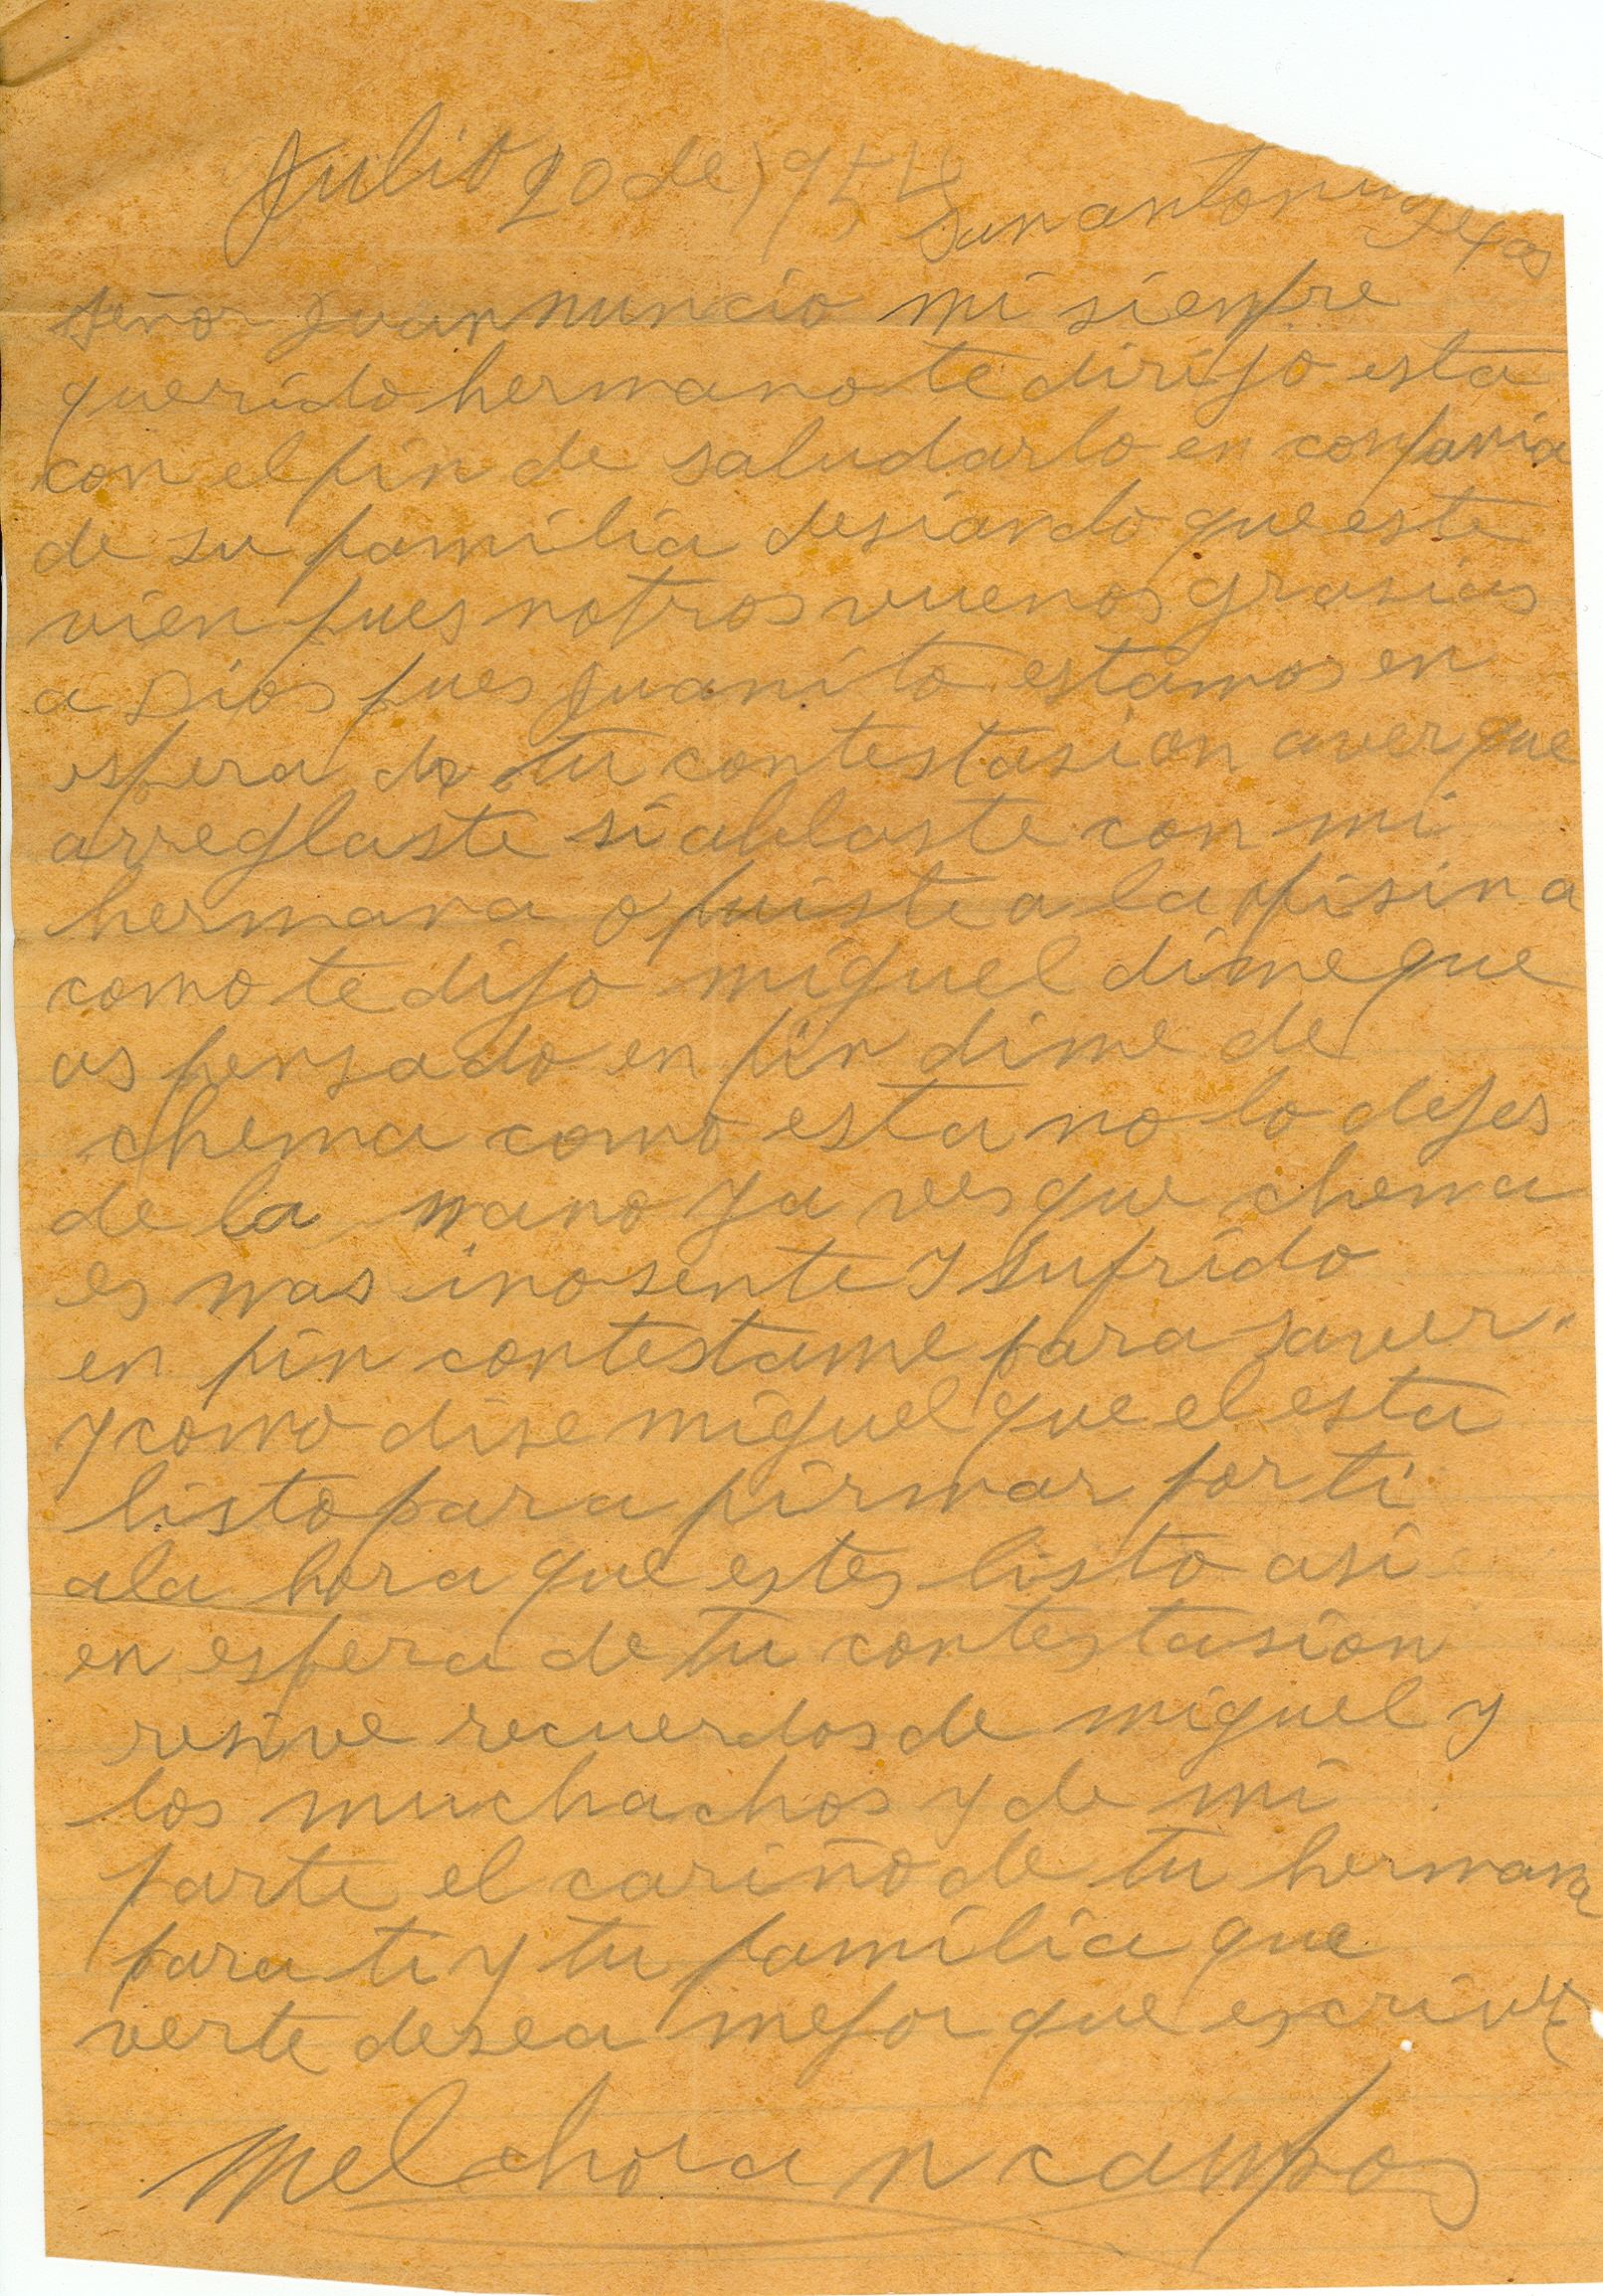 Julio 20 de 1954
San antonio Texas
Señor Juan nuncio mi sienpre
querido hermano te dirijo esta
con el fin de saludarlo en conpania
de su familia desiando que este
vien pues notros vuenos grasias
a Dios pues Juanito estamos en
espera de tu contestasion aver que
arreglaste si ablaste con mi
hermana o fuiste a la ofisina
como te dijo miguel dime que
as pensado en fin dime de
chema como esta no lo dejes
de la mano ya ves que chema
es mas inosente y sufrido
en fin contestame para saver
y como dise miguel que el esta
listo para firmar por ti
ala hora que estes listo asi
en espera de tu contestasion
resive recuerdos de miguel y
los muchachos y de mi
parte el cariño de tu hermana
para ti y tu familia que
verte desea mejor que escrivir
Melchora n campos